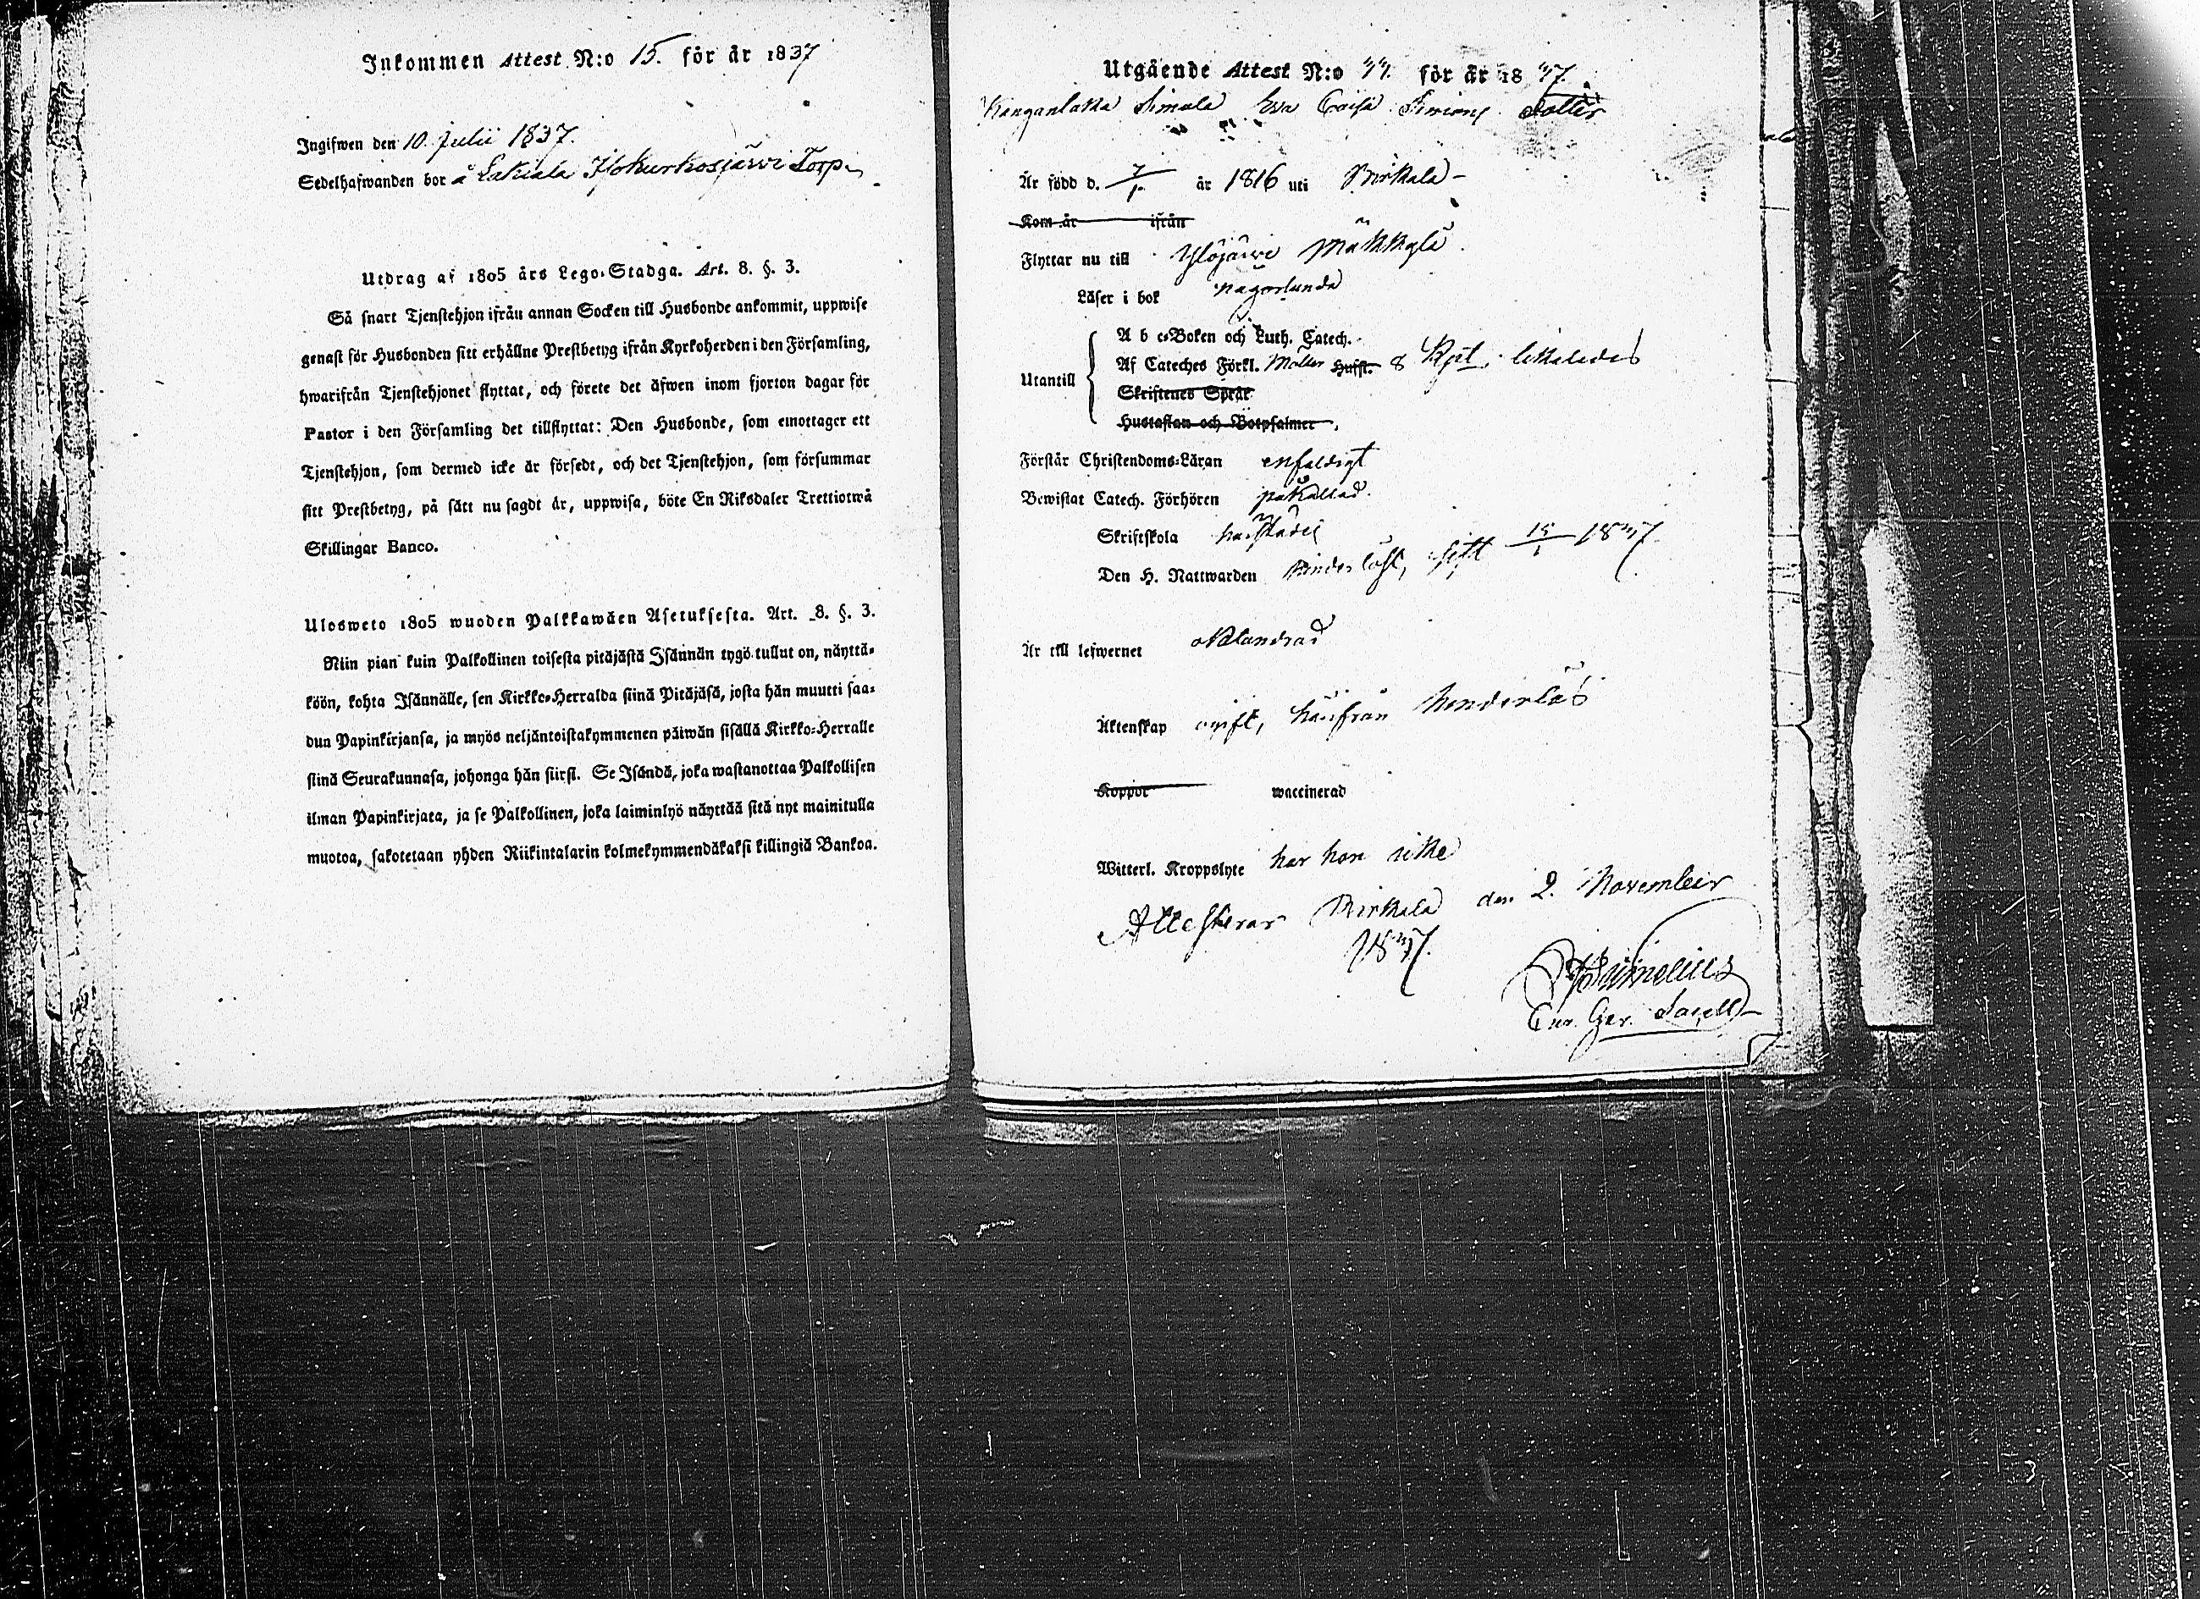 Inkommen Attest N:o 15. för år 1837
Ingifwen den 10. Julii 1837.
Sedelhafwanden bor å Lakiala Isokurkosjärwi Torp
Utdrag af 1805 års Lego-Stadga. Art. 8. §. 3.
Så snart Tjenstehjon ifrån annan Socken till Husbonde ankommit, uppwise
genast för Husbonden sitt erhållne Prestbetyg ifrån Kyrkoherden i den Församling,
hwarifrån Tjenstehjonet flyttat, och förete det äfwen inom fjorton dagar för
Pastor i den Församling det tillflyttat: Den Husbonde, som emottager ett
Tjenstehjon, som dermed icke är försedt, och det Tjenstehjon, som försummar
sitt Prestbetyg, på sätt nu sagdt är, uppwisa, böte En Riksdaler Trettiotwå
Skillingar Banco.
Ulosweto 1805 wuoden Palkkawäen Asetuksesta. Art. 8. §. 3.
Niin pian kuin Palkollinen toisesta pitäjästä Isännän tygö tullut on, näyttä-
köön, kohta Isännälle, sen Kirkko-Herralda siinä Pitäjäsä, josta hän muutti saa-
dun Papinkirjansa, ja myös neljäntoistakymmenen päiwän sisällä Kirkko-Herralle
siinä Seurakunnasa, johonga hän siirsi. Se Isändä, joka wastanottaa Palkollisen
ilman Papinkirjata, ja se Palkollinen, joka laiminlyö näyttää sitä nyt mainitulla
muotoa, sakotetaan yhden Riikintalarin kolmekymmendäkaksi killingiä Bankoa.
Utgående Attest N:o för år 18
Simola Ewa Caisa Simons Dotter
Är född d. år 1816 uti Birkala
Kom år ifrån
Flyttar nu till Ylöjärwi Mäkkylä
Läser i bok någorlunda
A b c-Boken och Luth. Catech.
Utantill Af Cateches Förkl. Möllers Husst. &
Skriftenes Språk
Hustaflan och Botpsalmer
Förstår Christendoms-Läran enfaldigt
Bewistat Catech. Förhören påkallad
Skriftskola
Den H. Nattwarden
Är till lefwernet oklandrad
Äktenskap ogift, härifrån hinderlös
Koppor waccinerad
Witterl. Kroppslyte har hon icke
Attesterar Birkala den 2. November
1837.